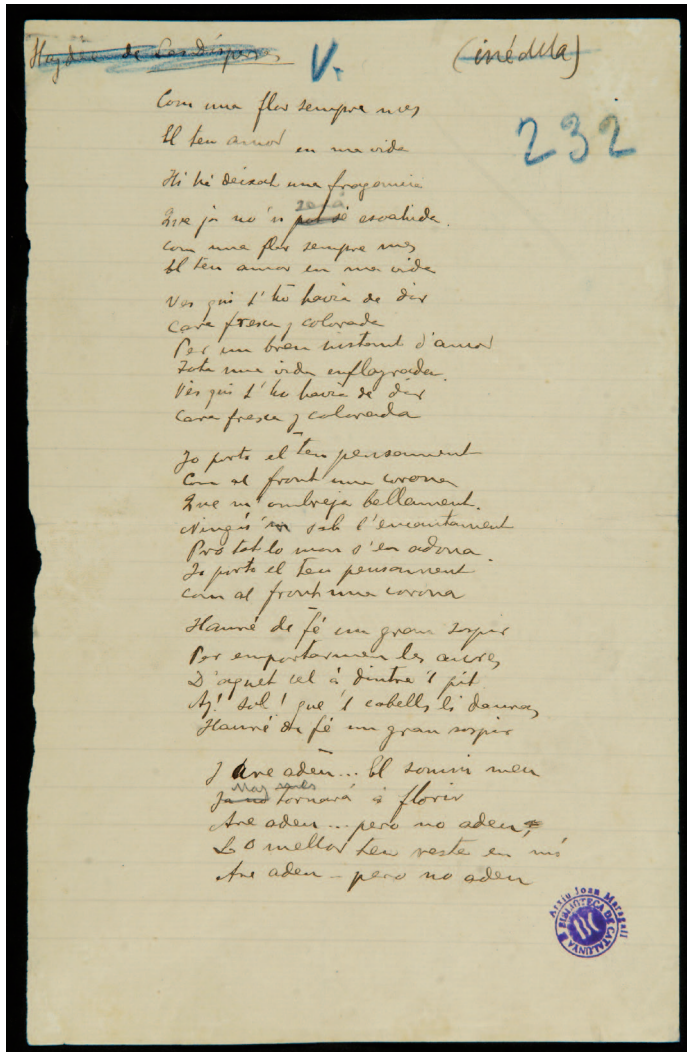 V.
(inédita)
232
Com una flor sempre mes
El teu amor en ma vida
Hi há deixat una fragancia
Que ja no 'n pot sé esvahida.
será
Com una flor sempre mes
El teu amor en ma vida
Ves qui t'ho havia de dir
Cara fresca y colorada
Per un breu instant d'amor
Tota una vida enflayrada.
Ves qui t'ho havia de dir
Cara fresca y colorada
Jo porto el teu pensament
Com al front una corona
Que m'ombreja bellament.
Ningú sab l'encantament
Pro tot lo mon s'en adona.
Jo porto el teu pensament
Com al front una corona
Hauré de fé un gran sospir
Per emportarmen les aures
D'aquet cel á dintre 'l pit
Ay! Sol! que 'l cabells li daures
Hauré de fé un gran sospir
Y Are adeu... El somni meu
May més
Ja no tornará á florir
Are adeu... pero no adeu,
Lo mellor teu resta en mí
Are adeu - pero no adeu
Arxiu Joan Maragall
BIBLIOTECA DE CATALUNYA